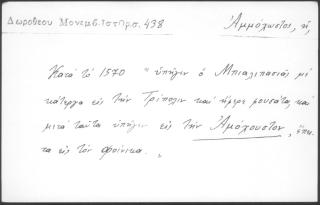 Δωροθεου Μονεμβ. Ιστορ σ. 438
Ἀμμόχωστος, ἡ,
Κατὰ τὸ 1570 "ὑπῆγεν ὁ Μπιαλιπασιᾶς μὲ
κάτεργα εἰς τὴν Τρίπολιν καὶ ἐπῆρε μουσάτα, καὶ
μετὰ ταῦτα ὑπῆγεν εἰς τὴν Ἀμόχουστον, ἔπει-
τα εἰς τὸν φοίνικα. „